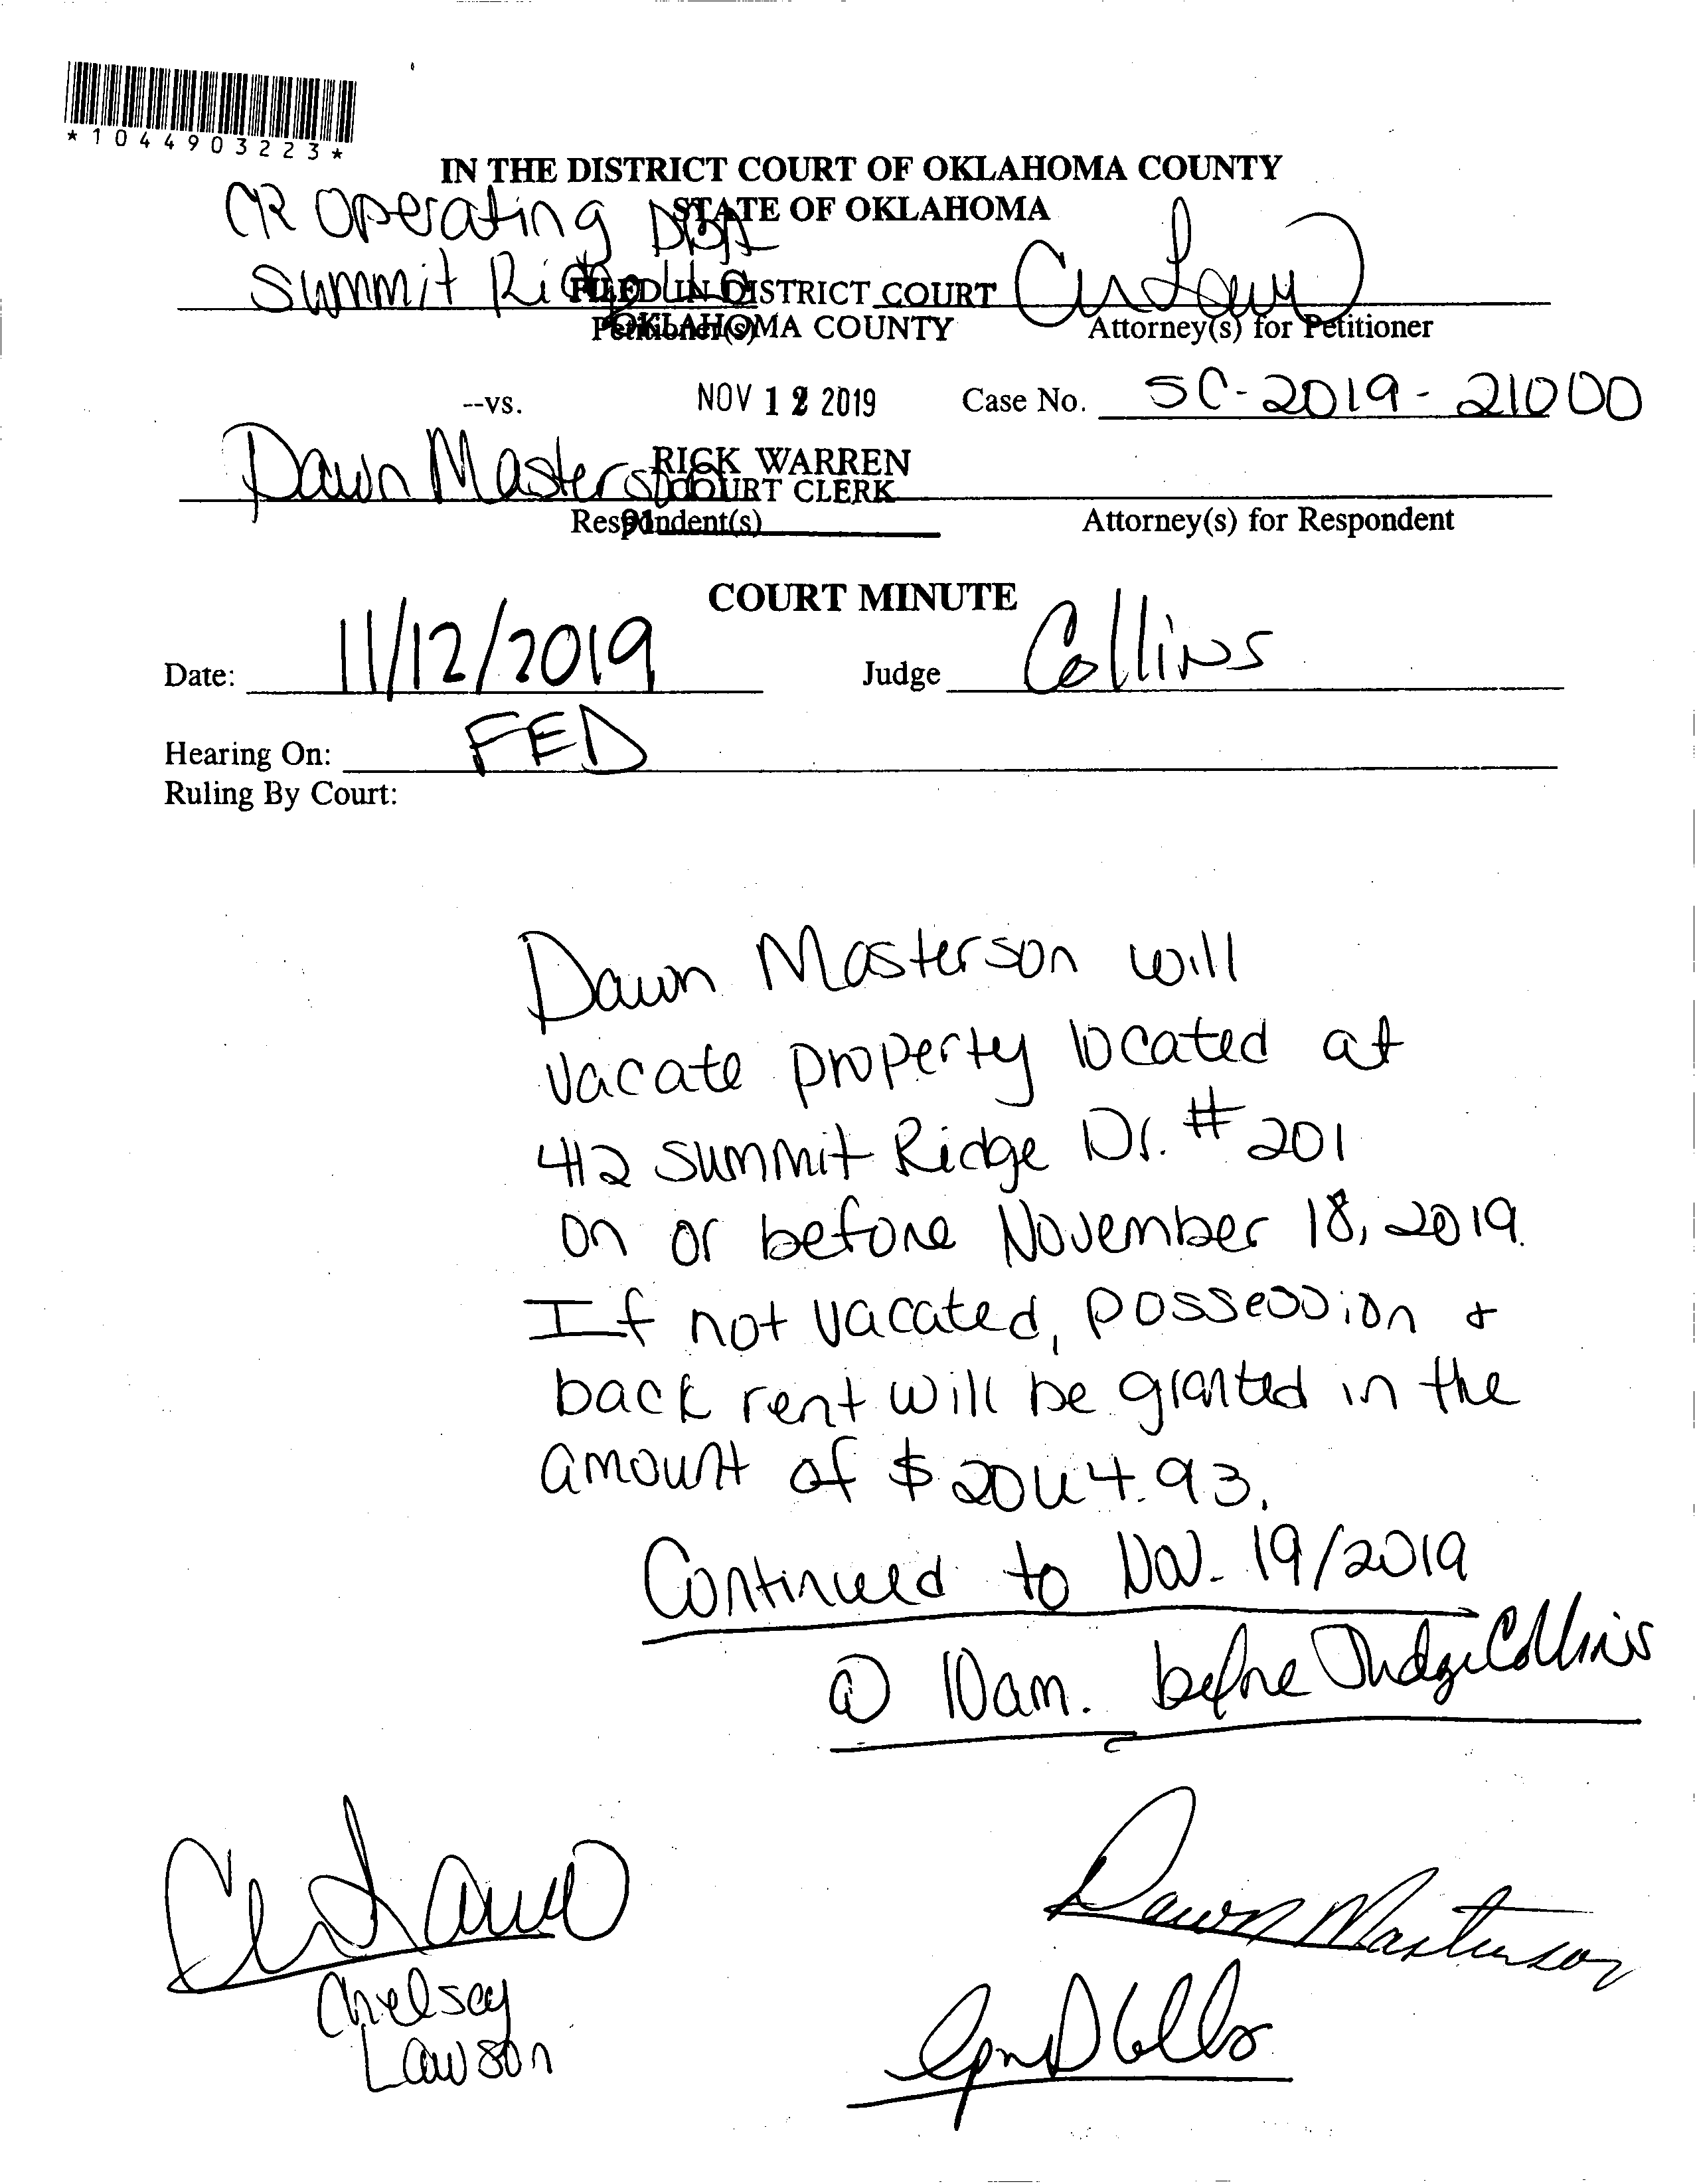 *1044903223*
IN THE DISTRICT COURT OF OKLAHOMA COUNTY
STATE OF OKLAHOMA
CR Operating DBA
Summit Ridge
FILED IN DISTRICT COURT
OKLAHOMA COUNTY
Petitioner(s)
Attorney(s) for Petitioner
--vs.
NOV 12 2019
Case No. SC-2019-21000
Dawn Masterson
RICK WARREN
COURT CLERK
Respondent(s)
Attorney(s) for Respondent
COURT MINUTE
Date: 11/12/2019
Judge Collins
Hearing On: FED
Ruling By Court:
Dawn Masterson will
vacate property located at
412 Summit Ridge Dr. #201
on or before November 18, 2019.
If not vacated, possession &
back rent will be granted in the
amount of $ 93.
Continued to Nov. 19/2019
@ 10am. before Judge Collins
Dawn Masterson
Chelsey
Lawson